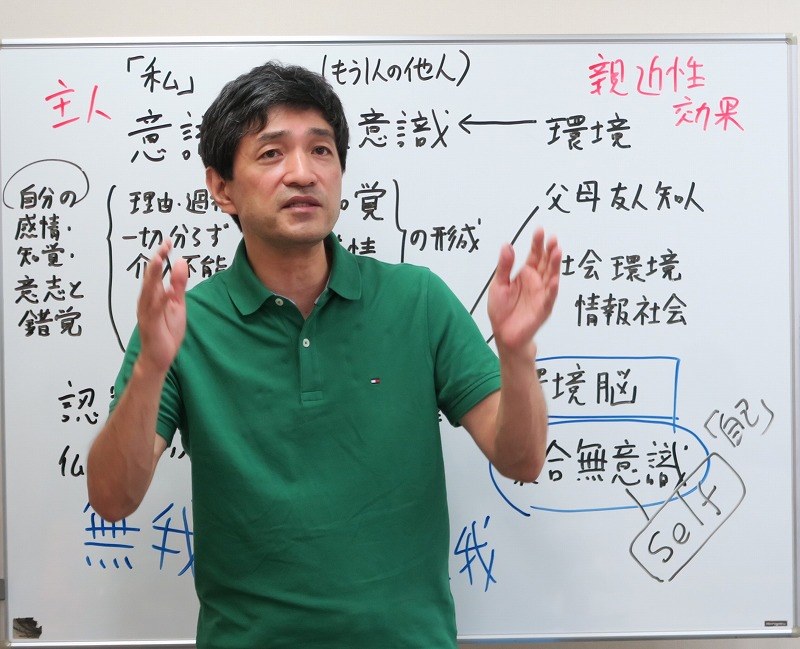 「私」
(もう1人の他人)
主人
親近性
効果
意識
意識
環境
自分の
感情・
知覚・
意志と
錯覚
理由・過
覚
一切分らず
情
介入不能
の形成
父母友人知人
社会環境
情報社会
認
環境脳
仏
集合無意識
「自己」
self
無我
我